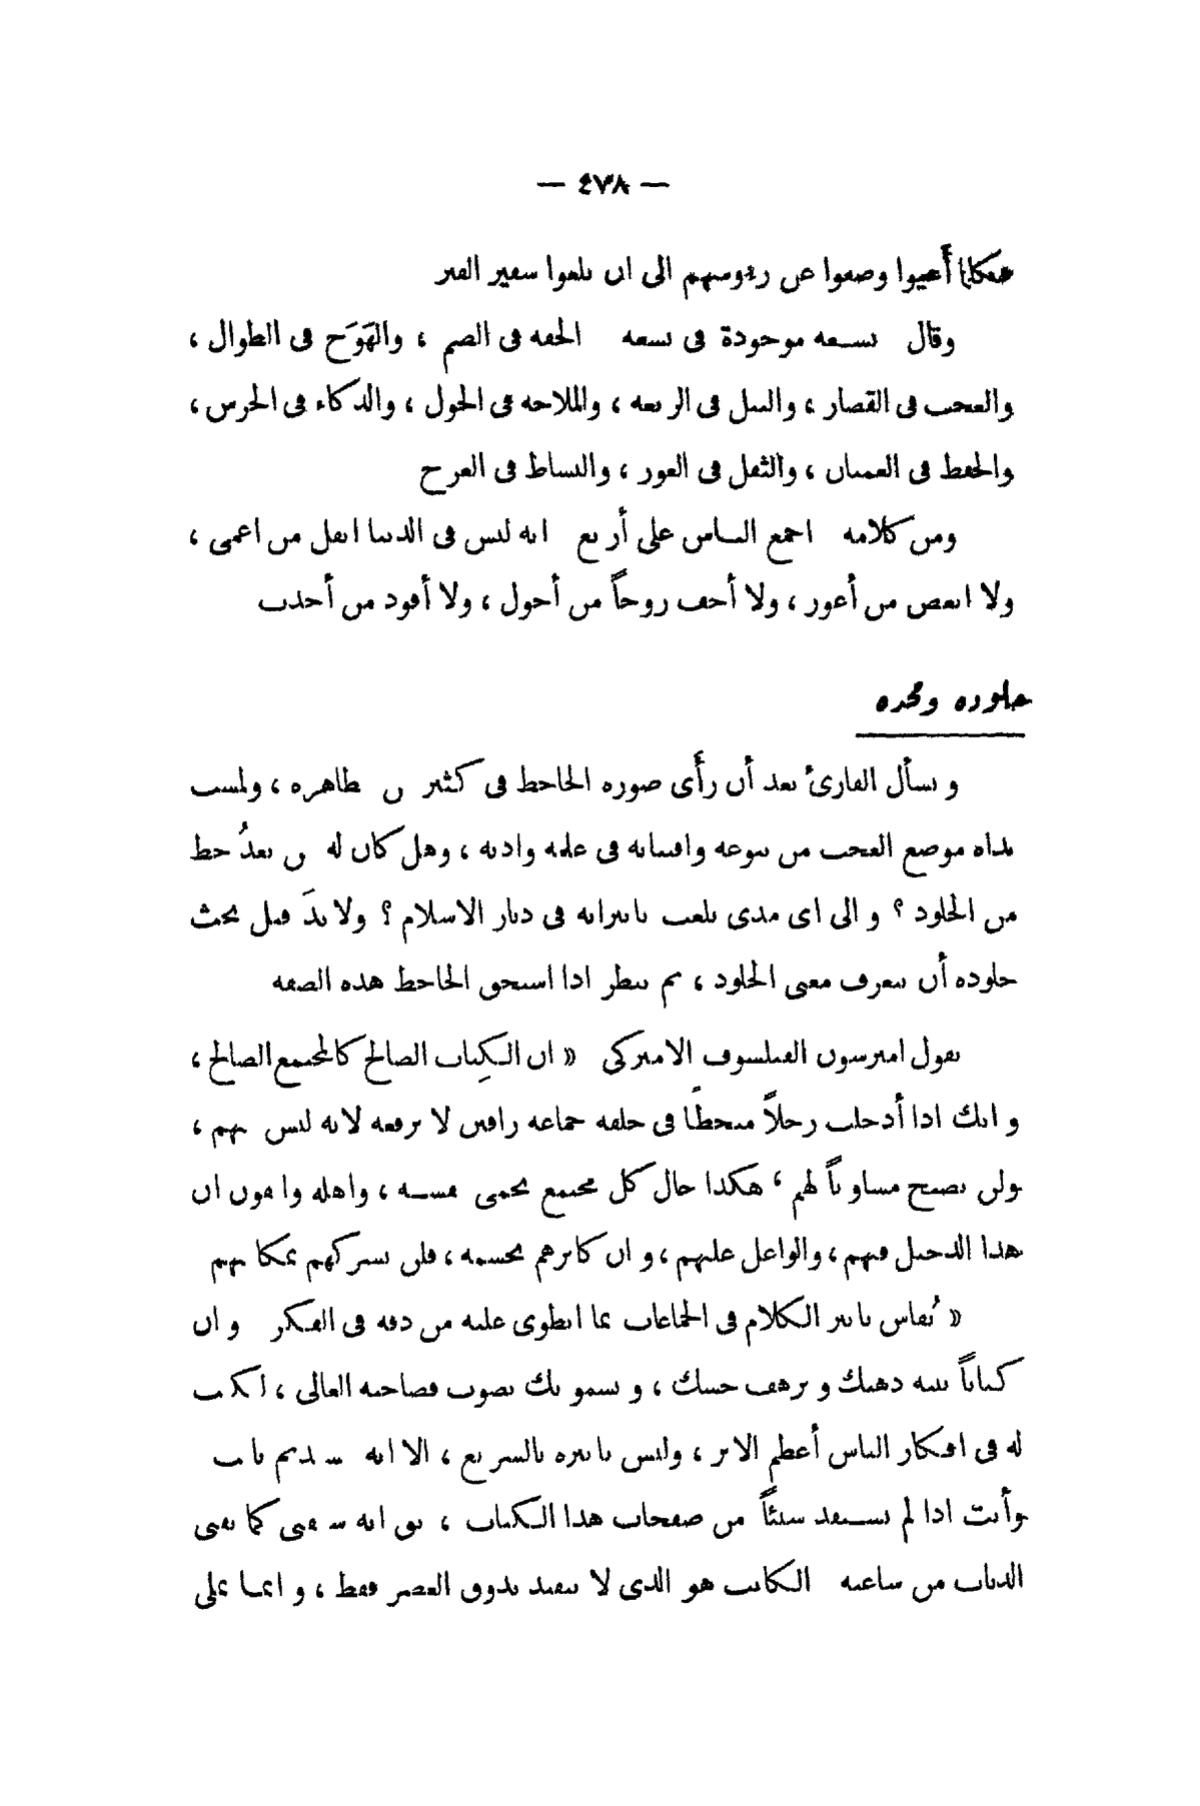 — ٤٧٨ —
أُعيوا وصفعوا عن رءوسهم الى ان بلغوا شفير القبر
وقال تسعة موجودة فى تسعة الخفة فى الصم ، والهَوَج فى الطوال ،
والعجب فى القصار ، والنبل فى الربعة ، والملاحة فى الحول ، والذكاء فى الخرس ،
والحفظ فى العميان ، والثقل فى العور ، والنشاط فى العرج
ومن كلامه اجمع الناس على أربع انه ليس فى الدنيا اثقل من اعمى ،
ولا ابغض من أعور ، ولا أخف روحاً من أحول ، ولا أقود من أحدب
خلوده ومجده
ويسأل القارئ بعد أن رأى صورة الجاحظ فى كثير من مظاهره ، ولمست
يداه موضع العجب من نبوغه وافتنانه فى علمه وادبه ، وهل كان له من بعدُ حظ
من الخلود ؟ والى اى مدى بلغت تاثيراته فى ديار الاسلام ؟ ولا بدَ قبل بحث
خلوده أن نعرف معنى الخلود ، ثم ننظر اذا استحق الجاحظ هذه الصفة
يقول امرسون الفيلسوف الاميركى « ان الكِتاب الصالح كالمجتمع الصالح ،
وانك اذا أدخلت رجلاً منحطّا فى حلقة جماعة راقين لا ترفعه لانه ليس منهم ،
ولن يصبح مساوياً لهم ، هكذا حال كل مجتمع يحمى نفسه ، واهله واثقون ان
هذا الدخيل فيهم ، والواغل عليهم ، وان كاثرهم بجسمه ، فلن يشركهم بمكانتهم
« تُقاس تاثير الكلام فى الجماعات بما انطوى عليه من دقة فى الفكر وان
كتاباً ينبه ذهنك ويرهف حسك ، ويسمو بك بصوت فصاحته العالى ، اكتب
له فى افكار الناس أعظم الاثر ، وليس تاثيره بالسريع ، الا انه سديم ثابت
وأنت اذا لم تستفد شيئاً من صفحات هذا الكتاب ، ثق انه سيفنى كما يفنى
الذباب من ساعته الكاتب هو الذى لا يتقيد بذوق العصر فقط ، وانما يملى